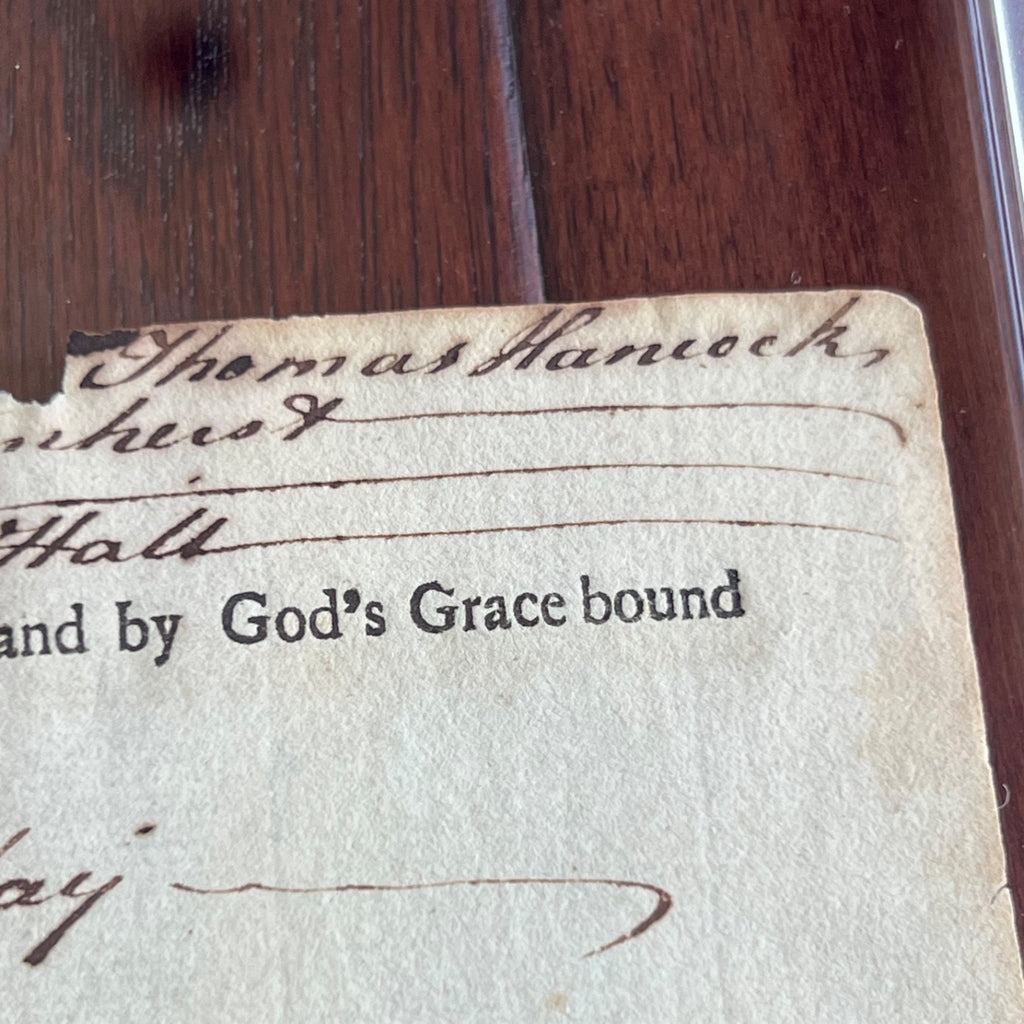 Thomas Hancock,
mherst
Hall
and by God's Grace bound